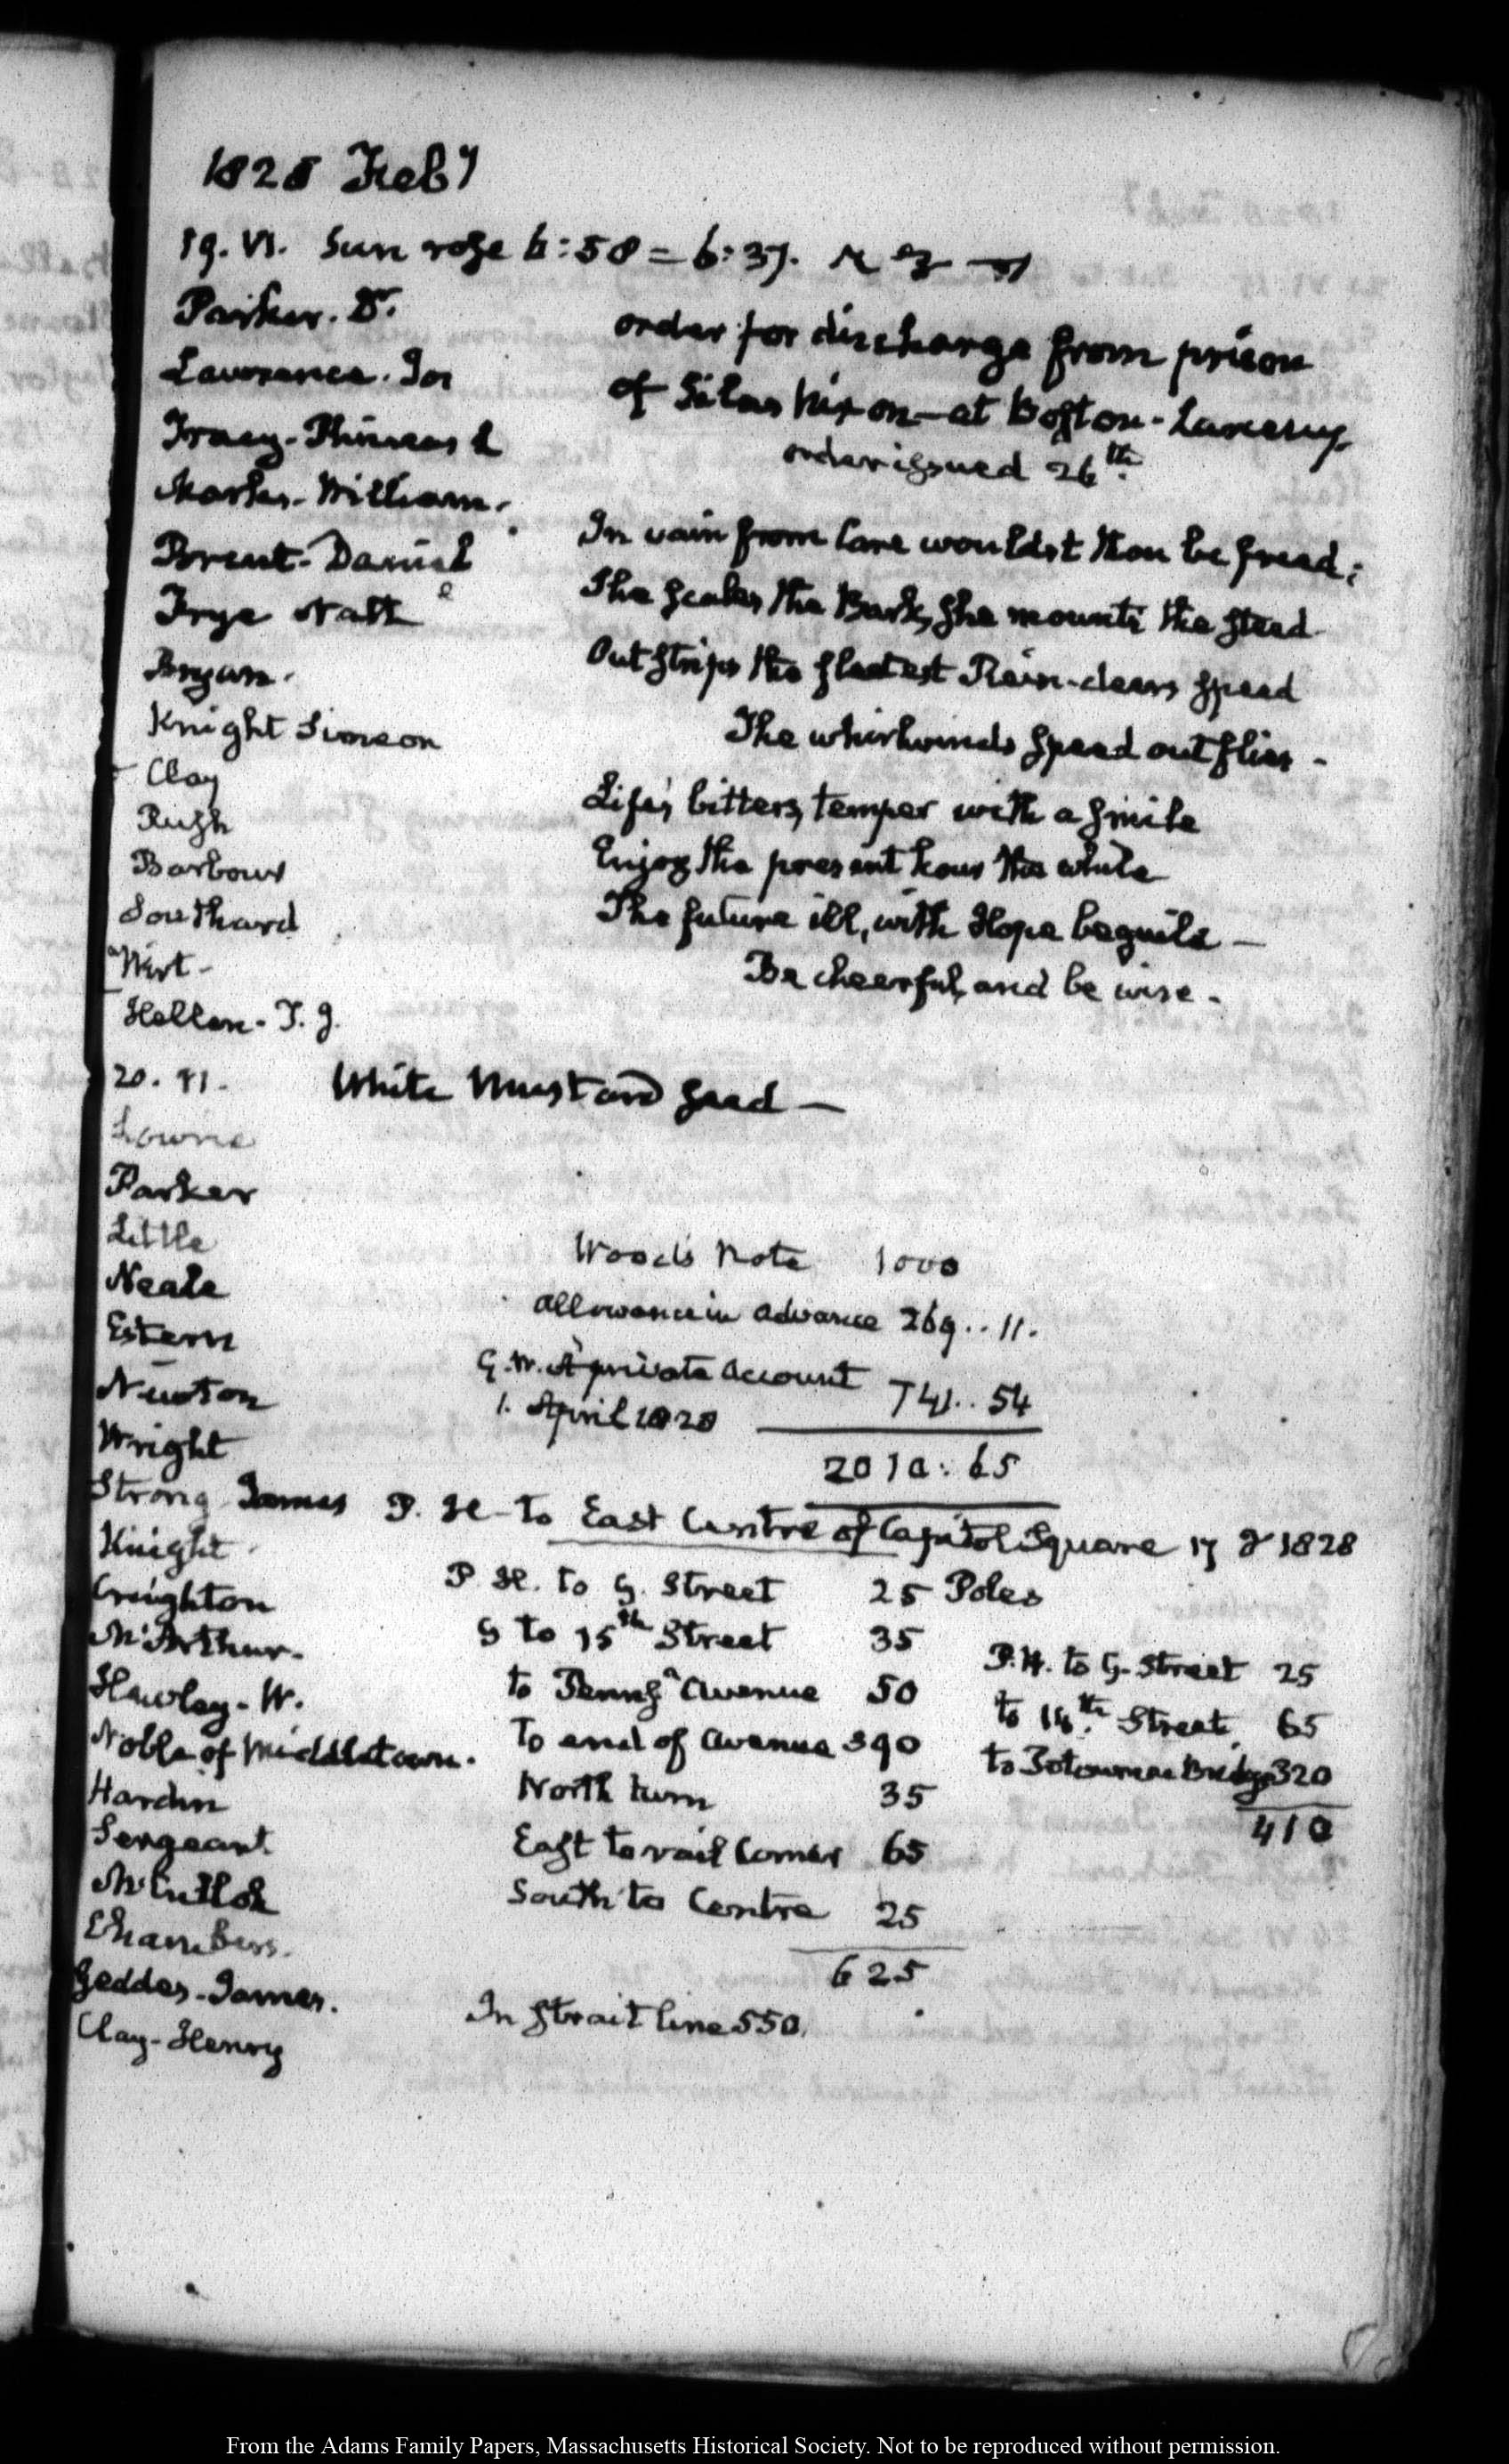 1828 Feby
19. VI. Sun rose 6:58 = 6:37.
Parker. D.
Lawrence. Jos
Tracy - Phineas L
Marks - William.
Brent - Daniel
Frye Nathl
Bryan.
Knight Simeon
Clay
Rush
Barbour
Southard
Wirt -
Hellen - J. G.
order for discharge from prison
of Silas Nixon - at Boston - Larceny.
order issued 26th.
In vain from Care wouldst thou be freed;
She scales the Bark, she mounts the steed
Outstrips the fleetest Rein-deers speed
The whirlwinds speed outflies -
Life's bitters, temper with a smile
Enjoy the present hour the while
The future ill, with Hope beguile -
Be cheerful, and be wise.
20. VI. White Mustard seed -
Lowrie
Parker
Little
Neale
Estern
Newton
Wright
Strong James
Knight
Creighton
McArthur.
Hawley - W.
Noble of Middletown.
Hardin
Sergeant
Chambers.
Geddes - James.
Clay - Henry
Woods Note 1000
allowance in advance 269..11.
G. W. A private account 741..54
1. April 1828
2010:65
P. H - to East Centre of Capitol Square 1828
P H. to G. Street 25 Poles
G to 15th Street 35
to Pennsa Avenue 50
To end of Avenue 390
North turn 35
East to rail Corner 65
South to Centre 25
625
In strait line 550.
P. H. to G. Street 25
to 14th. Street. 65
to Potowmac Bridge 320
410
From the Adams Family Papers, Massachusetts Historical Society. Not to be reproduced without permission.